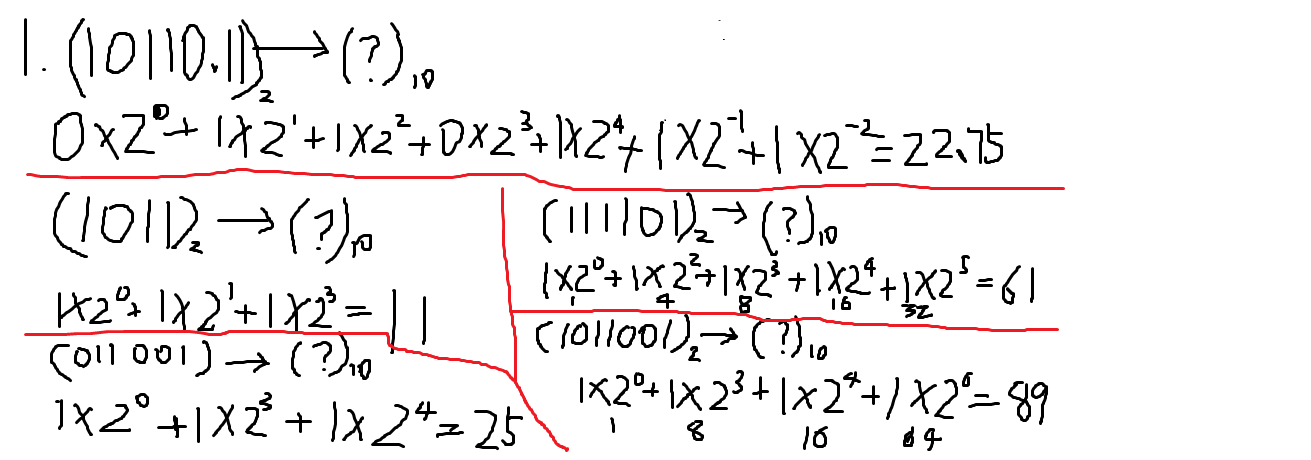 1. (10110.11)₂ → (?)₁₀
0x2⁰ + 1x2¹ + 1x2² + 0x2³ + 1x2⁴ + 1x2⁻¹ + 1x2⁻² = 22.75
(1011)₂ → (?)₁₀
1x2⁰ + 1x2¹ + 1x2³ = 11
(011001) → (?)₁₀
1x2⁰ + 1x2³ + 1x2⁴ = 25
(111101)₂ → (?)₁₀
1x2⁰ + 1x2² + 1x2³ + 1x2⁴ + 1x2⁵ = 61
1 4 8 16 32
(1011001)₂ → (?)₁₀
1x2⁰ + 1x2³ + 1x2⁴ + 1x2⁶ = 89
1 8 16 64